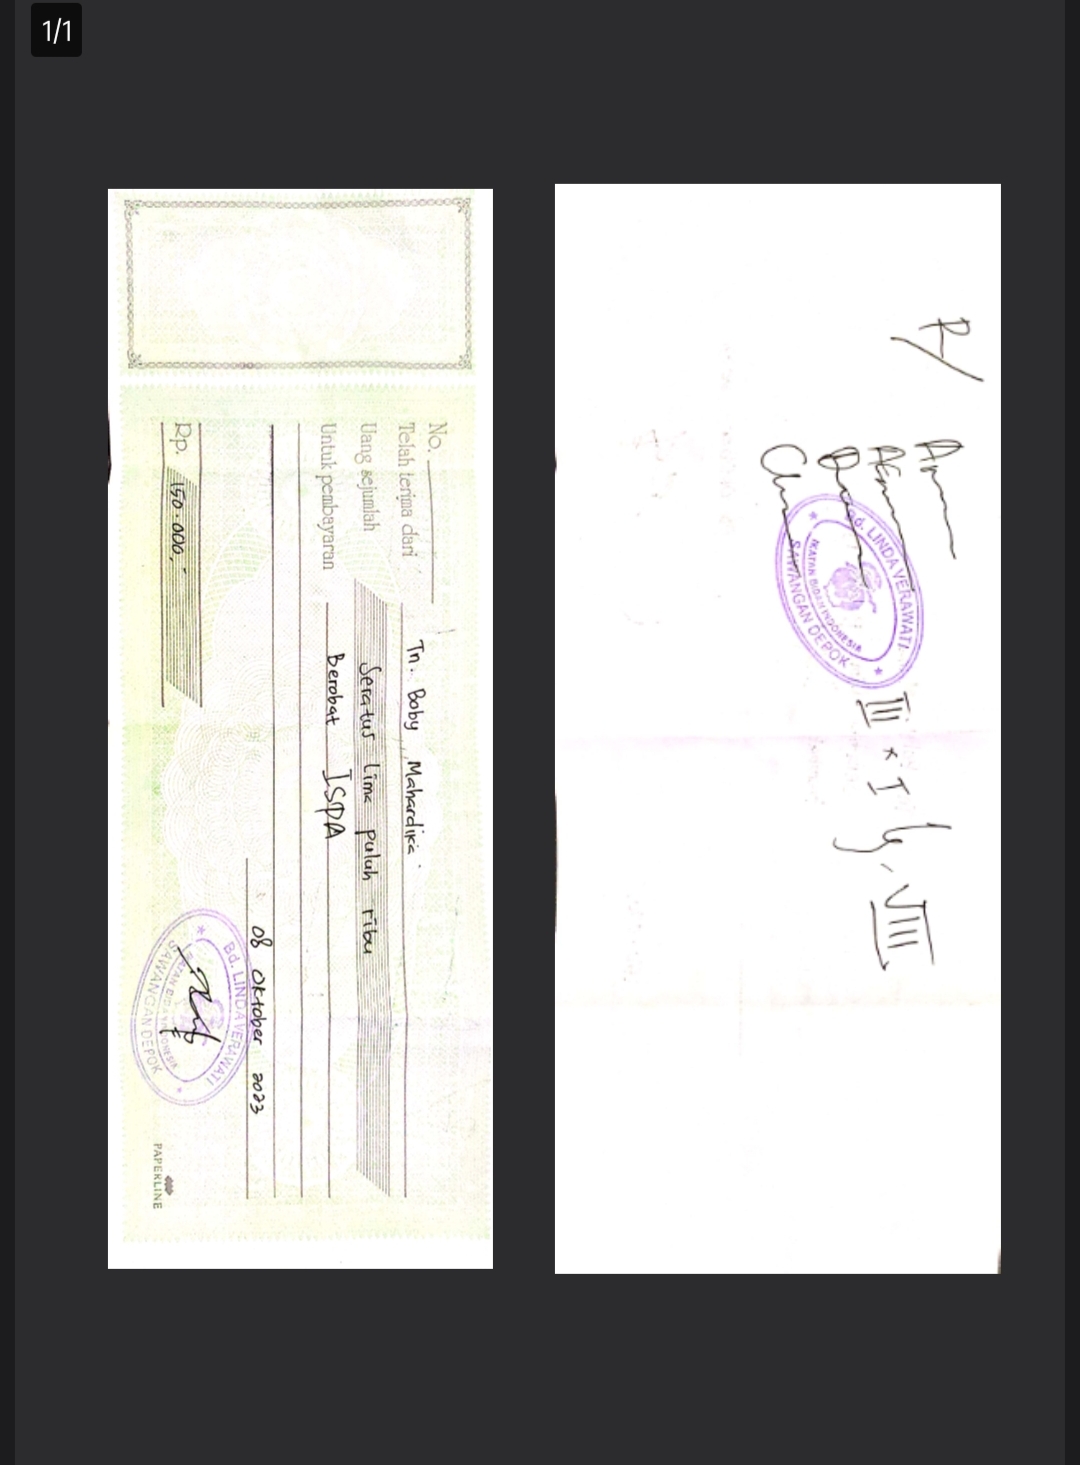 1/1
No.
Telah terima dari Tn. Boby Mahardika
Uang sejumlah Seratus Lima puluh ribu
Untuk pembayaran Berobat ISPA
08 Oktober 2023
Rp. 150.000,-
Bd. LINDA VERAWATI
IKATAN BIDAN INDONESIA
SAWANGAN DEPOK
PAPERLINE
R/
Bd. LINDA VERAWATI
IKATAN BIDAN INDONESIA
SAWANGAN DEPOK
III x I
VIII